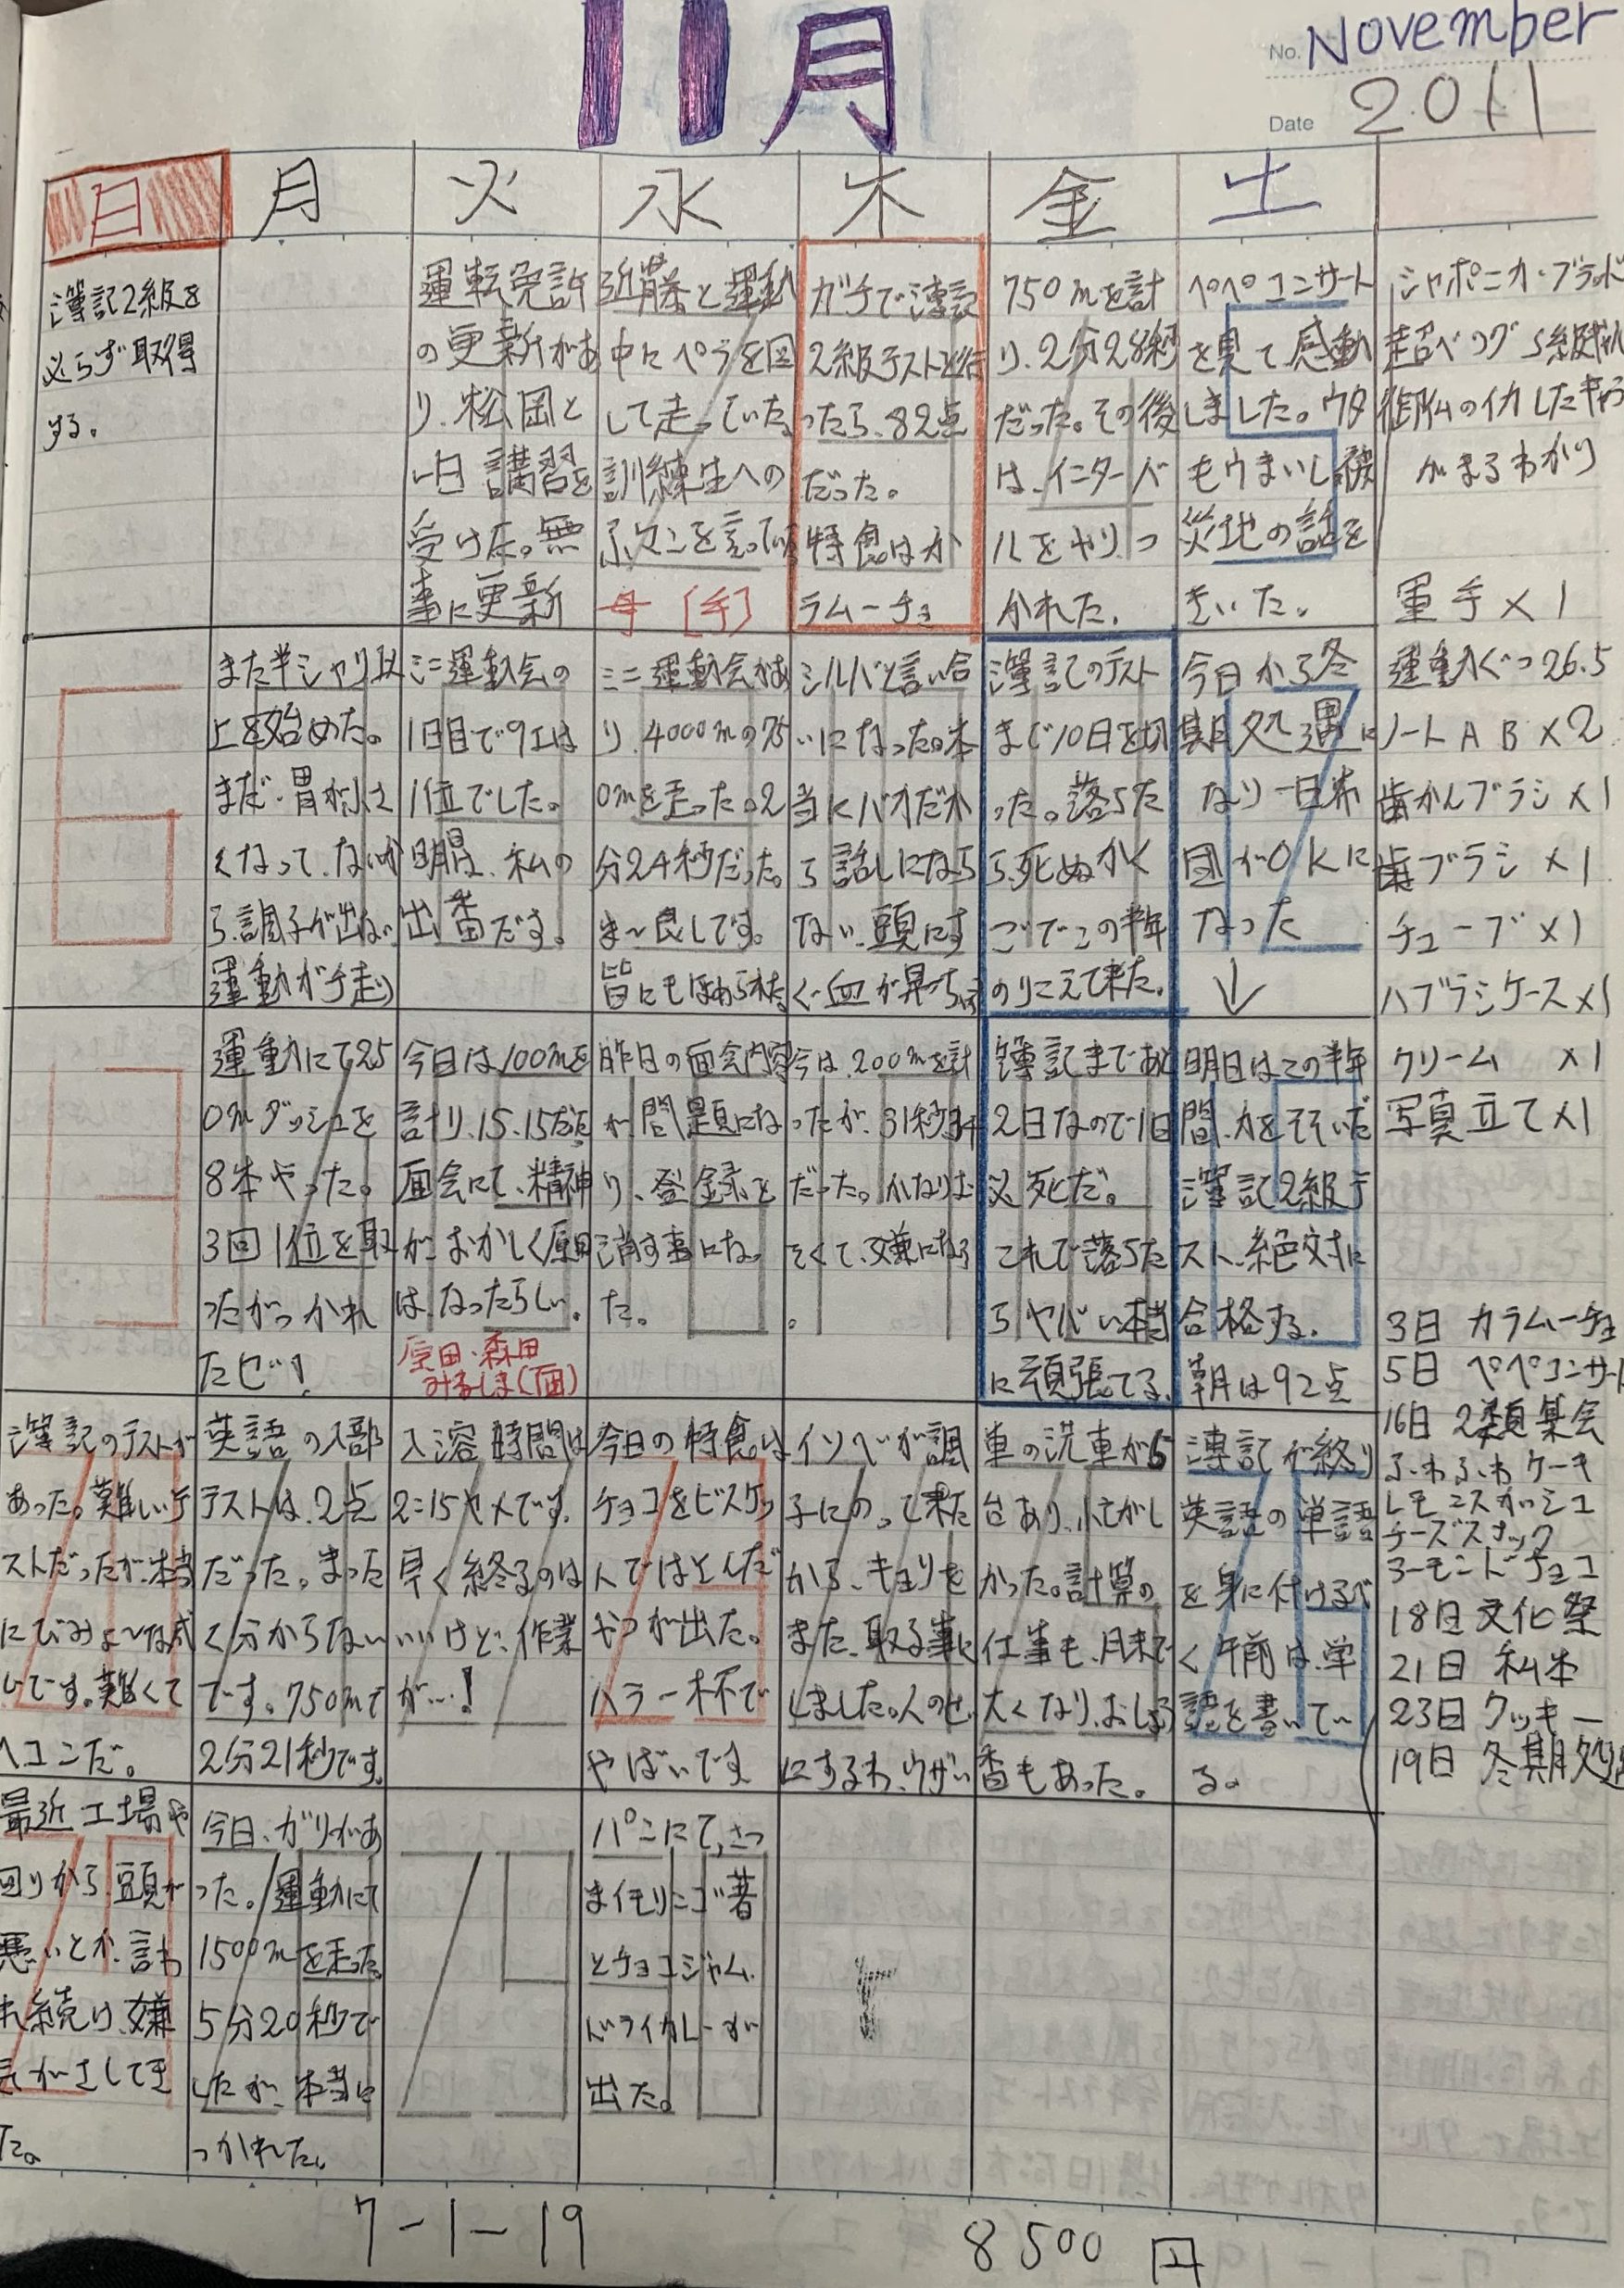 11月
No. November
Date 2011
日 月 火 水 木 金 土
簿記2級を
必らず取得
する。
運転免許
の更新があ
り、松岡と
一日講習を
受けた。無
事に更新
近藤と運動
中にペラを回
して走っていた。
訓練生への
母 [手]
ガチで簿記
2級テストを行
ったら、82点
だった。
特食はカ
ラムーチョ
750mを計
り、2分28秒
だった。その後
は、インターバ
ルをやりつ
かれた。
ペペコンサート
を見て感動
しました。ウタ
もウマいし、被
災地の話を
きいた。
シャポニカ・ブランド
がまるわかり
軍手×1
また半シャリ以
上を始めた。
まだ、胃が小さ
くなって、ないか
ら、調子が出ない
運動ガチ走り
ミニ運動会の
1日目で9工は
1位でした。
明日は、私の
出番だす。
ミニ運動会があ
り、4000mの75
0mを走った。2
分24秒だった。
ま〜良しです。
皆にもほめられた
シルバと言い合
いになった。本
当にバカだか
ら話しになら
ない、頭にす
ぐ血が昇っちゃう
簿記のテスト
まで10日を切
った。落ちた
ら、死ぬかく
ごでこの半年
のりこえて来た。
今日から冬
期処遇に
なり一日布
団がOKに
なった
↓
運動ぐつ26.5
ノートAB×2
歯かんブラシ×1
歯ブラシ×1
チューブ×1
ハブラシケース×1
運動にて25
0mダッシュを
8本やった。
3回1位を取
ったがつかれ
たぜ!
今日は100mを
計り、15.15だった
面会にて、精神
が、おかしく原田
は、なったらしい。
原田・森田
昨日の面会内容
が、問題にな
り、登録を
消す事にな。
た。
今は、200mを計
ったが、31秒34
だった。かなりお
そくて、嫌になる
。
簿記まであと
2日なので1日
必死だ。
これで落ちた
らヤバい、本当
に頑張てる。
明日はこの半年
間、力をそそいだ
簿記2級テ
スト、絶対に
合格する。
朝は92点
クリーム ×1
写真立て×1
3日 カラムーチョ
5日 ペペコンサート
16日 2類集会
ふわふわケーキ
レモンスカッシュ
チーズスナック
アーモンドチョコ
18日 文化祭
21日 私本
23日 クッキー
19日 冬期処遇
簿記のテストが
あった。難しいテ
ストだったが、本当
にびみょ〜な感
じです。難くて
ヘコンだ。
英語の入部
テストは、2点
だった。まった
く分からない
です。750mで
2分21秒です。
入溶時間は
2:15ヤメです。
早く終るのは
いいけど、作業
が…!
今日の特食は
チョコをビスケッ
トではさんだ
やつが出た。
ハラ一杯で
やばいです
イソベが調
子にのって来た
から、キョリを
また、取る事に
しました。人のせ
にするわ、ウザい
車の洗車が5
台あり、いそがし
かった。計算の
仕事も、月末で
大くなり、おしる
番もあった。
簿記が終り
英語の単語
を身に付けるべ
く午前は、単
語を書いてい
る。
最近工場や
回りから、頭が
悪いとか、言わ
れ続け、嫌
気がさしてき
た。
今日、ガリがあ
った。運動にて
1500mを走った。
5分20秒で
したが、本当に
つかれた。
パンにて、さつ
まイモリンゴ著
とチョコジャム、
ドライカレーが
出た。
7-1-19
8500円